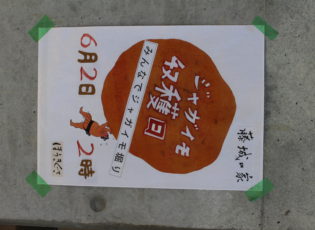 藤城の家
ジャガイモ
収穫日
みんなでジャガイモ掘り
6月2日 2時